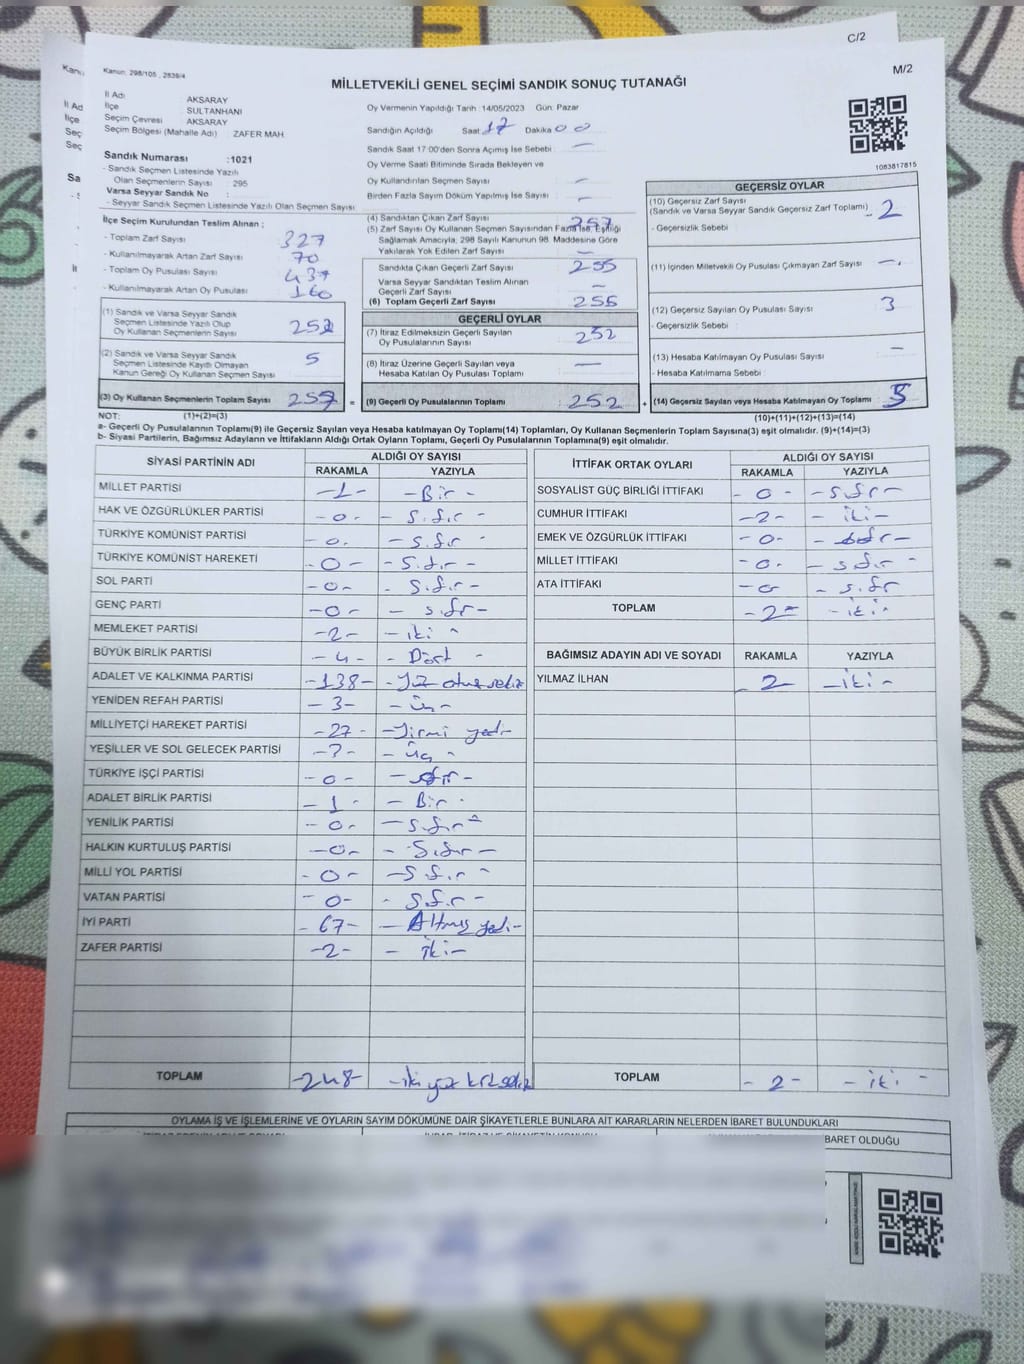 C/2
M/2
Kanun: 298/105 , 2839/4
MİLLETVEKİLİ GENEL SEÇİMİ SANDIK SONUÇ TUTANAĞI
İl Adı AKSARAY
İlçe SULTANHANI
Seçim Çevresi AKSARAY
Seçim Bölgesi (Mahalle Adı) ZAFER MAH
Oy Vermenin Yapıldığı Tarih :14/05/2023 Gün: Pazar
Sandığın Açıldığı Saat 17 Dakika 00
Sandık Saat 17:00'den Sonra Açımış İse Sebebi : —
Oy Verme Saati Bitiminde Sırada Bekleyen ve
Oy Kullandırılan Seçmen Sayısı : —
Birden Fazla Sayım Döküm Yapılmış İse Sayısı : —
1083817815
Sandık Numarası :1021
- Sandık Seçmen Listesinde Yazılı
Olan Seçmenlerin Sayısı : 295
Varsa Seyyar Sandık No :
- Seyyar Sandık Listesinde Yazılı Olan Seçmen Sayısı:
İlçe Seçim Kurulundan Teslim Alınan ;
- Toplam Zarf Sayısı 327
- Kullanılmayarak Artan Zarf Sayısı 70
- Toplam Oy Pusulası Sayısı 437
- Kullanılmayarak Artan Oy Pusulası 160
(1) Sandık ve Varsa Seyyar Sandık
Seçmen Listesinde Yazılı Olup
Oy Kullanan Seçmenlerin Sayısı 252
(2) Sandık ve Varsa Seyyar Sandık
Seçmen Listesinde Kayıtlı Olmayan
Kanun Gereği Oy Kullanan Seçmen Sayısı 5
(3) Oy Kullanan Seçmenlerin Toplam Sayısı 257 =
(4) Sandıktan Çıkan Zarf Sayısı 257
(5) Zarf Sayısı Oy Kullanan Seçmen Sayısından Fazla İse, Eşitliği
Sağlamak Amacıyla; 298 Sayılı Kanunun 98. Maddesine Göre
Yakılarak Yok Edilen Zarf Sayısı —
Sandıkta Çıkan Geçerli Zarf Sayısı 255
Varsa Seyyar Sandıktan Teslim Alınan
Geçerli Zarf Sayısı —
(6) Toplam Geçerli Zarf Sayısı 255
GEÇERLİ OYLAR
(7) İtiraz Edilmeksizin Geçerli Sayılan
Oy Pusulalarının Sayısı 252
(8) İtiraz Üzerine Geçerli Sayılan veya
Hesaba Katılan Oy Pusulası Toplamı —
(9) Geçerli Oy Pusulalarının Toplamı 252 +
GEÇERSİZ OYLAR
(10) Geçersiz Zarf Sayısı
(Sandık ve Varsa Seyyar Sandık Geçersiz Zarf Toplamı) 2
- Geçersizlik Sebebi :
(11) İçinden Milletvekili Oy Pusulası Çıkmayan Zarf Sayısı —
(12) Geçersiz Sayılan Oy Pusulası Sayısı 3
- Geçersizlik Sebebi :
(13) Hesaba Katılmayan Oy Pusulası Sayısı —
- Hesaba Katılmama Sebebi :
(14) Geçersiz Sayılan veya Hesaba Katılmayan Oy Toplamı 5
NOT: (1)+(2)=(3) (10)+(11)+(12)+(13)=(14)
a- Geçerli Oy Pusulalarının Toplamı(9) ile Geçersiz Sayılan veya Hesaba katılmayan Oy Toplamı(14) Toplamları, Oy Kullanan Seçmenlerin Toplam Sayısına(3) eşit olmalıdır. (9)+(14)=(3)
b- Siyasi Partilerin, Bağımsız Adayların ve İttifakların Aldığı Ortak Oyların Toplamı, Geçerli Oy Pusulalarının Toplamına(9) eşit olmalıdır.
SİYASİ PARTİNİN ADI ALDIĞI OY SAYISI
RAKAMLA YAZIYLA
MİLLET PARTİSİ -1- -Bir-
HAK VE ÖZGÜRLÜKLER PARTİSİ -0- -Sıfır-
TÜRKİYE KOMÜNİST PARTİSİ -0- -Sıfır-
TÜRKİYE KOMÜNİST HAREKETİ -0- -Sıfır-
SOL PARTİ -0- -Sıfır-
GENÇ PARTİ -0- -Sıfır-
MEMLEKET PARTİSİ -2- -iki-
BÜYÜK BİRLİK PARTİSİ -4- -Dört-
ADALET VE KALKINMA PARTİSİ -138- -Yüz otuz sekiz
YENİDEN REFAH PARTİSİ -3- -üç-
MİLLİYETÇİ HAREKET PARTİSİ -27- -Yirmi yedi-
YEŞİLLER VE SOL GELECEK PARTİSİ -3- -üç-
TÜRKİYE İŞÇİ PARTİSİ -0- -Sıfır-
ADALET BİRLİK PARTİSİ -1- -Bir-
YENİLİK PARTİSİ -0- -Sıfır-
HALKIN KURTULUŞ PARTİSİ -0- -Sıfır-
MİLLİ YOL PARTİSİ -0- -Sıfır-
VATAN PARTİSİ -0- -Sıfır-
İYİ PARTİ -67- -Altmış yedi-
ZAFER PARTİSİ -2- -iki-
TOPLAM -248- -iki yüz kırk sekiz
İTTİFAK ORTAK OYLARI ALDIĞI OY SAYISI
RAKAMLA YAZIYLA
SOSYALİST GÜÇ BİRLİĞİ İTTİFAKI -0- -Sıfır-
CUMHUR İTTİFAKI -2- -iki-
EMEK VE ÖZGÜRLÜK İTTİFAKI -0- -Sıfır-
MİLLET İTTİFAKI -0- -Sıfır-
ATA İTTİFAKI -0- -Sıfır
TOPLAM -2- -iki-
BAĞIMSIZ ADAYIN ADI VE SOYADI RAKAMLA YAZIYLA
YILMAZ İLHAN -2- -iki-
TOPLAM -2- -iki-
OYLAMA İŞ VE İŞLEMLERİNE VE OYLARIN SAYIM DÖKÜMÜNE DAİR ŞİKAYETLERLE BUNLARA AİT KARARLARIN NELERDEN İBARET BULUNDUKLARI
BARET OLDUĞU